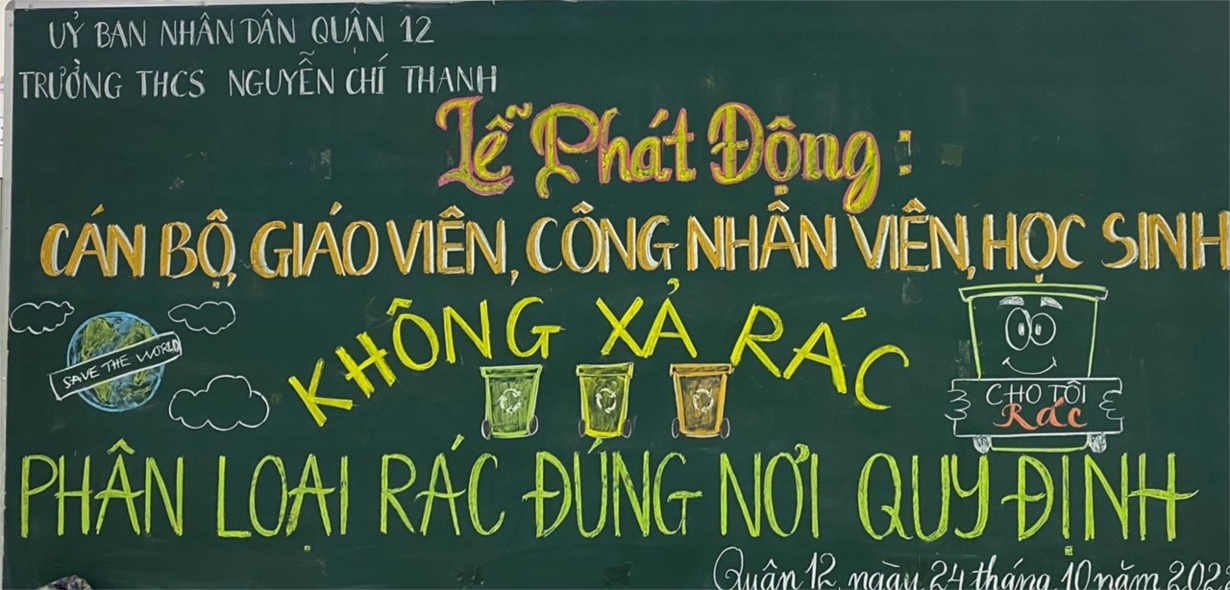 UỶ BAN NHÂN DÂN QUẬN 12
TRƯỜNG THCS NGUYỄN CHÍ THANH
Lễ Phát Động:
CÁN BỘ, GIÁO VIÊN, CÔNG NHÂN VIÊN, HỌC SINH
KHÔNG XẢ RÁC
SAVE THE WORLD
CHO TÔI
Rác
PHÂN LOẠI RÁC ĐÚNG NƠI QUY ĐỊNH
Quận 12, ngày 24 tháng 10 năm